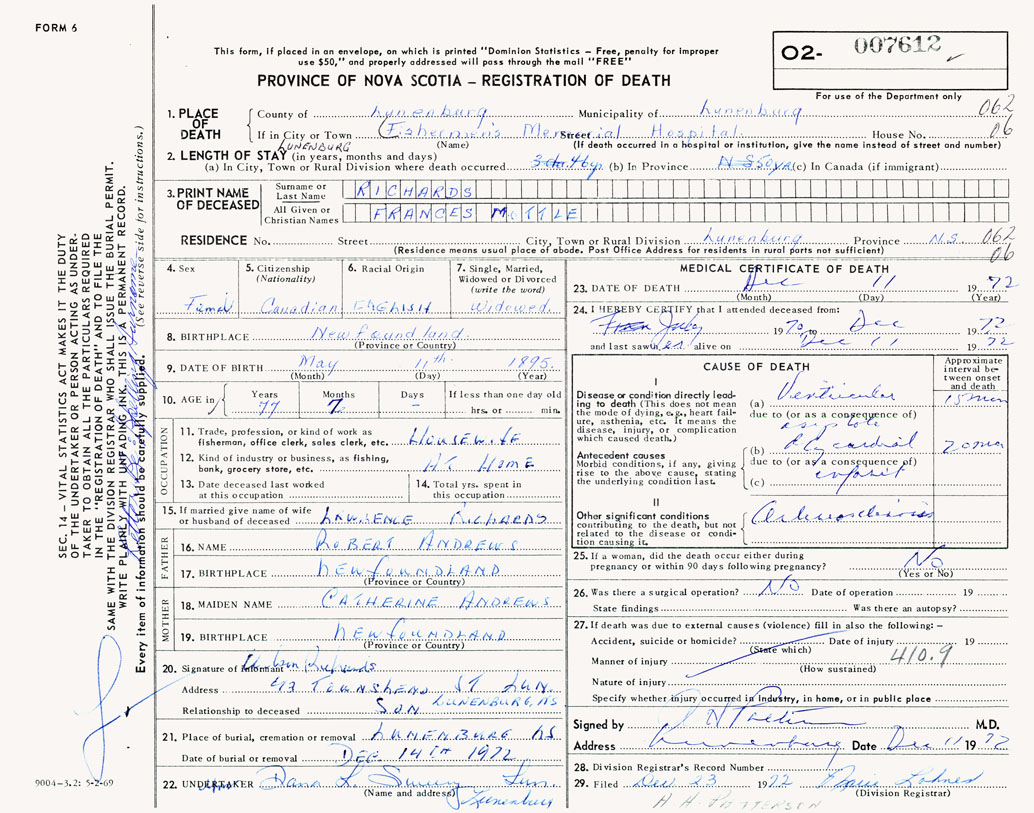 FORM 6
This form, if placed in an envelope, on which is printed "Dominion Statistics – Free, penalty for improper
use $50," and properly addressed will pass through the mail "FREE"
PROVINCE OF NOVA SCOTIA – REGISTRATION OF DEATH
O2- 007612
For use of the Department only
1. PLACE OF DEATH
County of Lunenburg Municipality of Lunenburg 062
If in City or Town Fishermen's Memorial Hospital Street House No. 06
LUNENBURG (Name) (If death occurred in a hospital or institution, give the name instead of street and number)
2. LENGTH OF STAY (in years, months and days)
(a) In City, Town or Rural Division where death occurred 46 yr (b) In Province (c) In Canada (if immigrant)
3. PRINT NAME OF DECEASED
Surname or Last Name RICHARDS
All Given or Christian Names FRANCES MYTLE
RESIDENCE No. Street City, Town or Rural Division Lunenburg Province N.S. 062
(Residence means usual place of abode. Post Office Address for residents in rural parts not sufficient) 06
4. Sex
5. Citizenship (Nationality) Canadian
6. Racial Origin ENGLISH
7. Single, Married, Widowed or Divorced (write the word) Widowed
8. BIRTHPLACE Newfoundland
(Province or Country)
9. DATE OF BIRTH May 11th 1895
(Month) (Day) (Year)
10. AGE in Years 77 Months 7 Days – If less than one day old
hrs. or min.
OCCUPATION
11. Trade, profession or kind of work as
fisherman, office clerk, sales clerk, etc. HOUSEWIFE
12. Kind of industry or business, as fishing,
bank, grocery store, etc. AT HOME
13. Date deceased last worked
at this occupation
14. Total yrs. spent in
this occupation
15. If married give name of wife
or husband of deceased LAWRENCE RICHARDS
FATHER
16. NAME ROBERT ANDREWS
17. BIRTHPLACE NEWFOUNDLAND
(Province or Country)
MOTHER
18. MAIDEN NAME CATHERINE ANDREWS
19. BIRTHPLACE NEWFOUNDLAND
(Province or Country)
20. Signature of informant Richards
Address 43 TOWNSHEND ST LUN.
Relationship to deceased SON LUNENBURG, NS
21. Place of burial, cremation or removal LUNENBURG NS
Date of burial or removal DEC. 14TH 1972
22. UNDERTAKER Dana L. Sweeny Lun.
(Name and address) Lunenburg
MEDICAL CERTIFICATE OF DEATH
23. DATE OF DEATH Dec 11 1972
(Month) (Day) (Year)
24. I HEREBY CERTIFY that I attended deceased from:
July 1970 to Dec 1972
and last saw her alive on Dec 11 1972
CAUSE OF DEATH
Approximate interval between onset and death
I
Disease or condition directly leading to death (This does not mean the mode of dying, e.g., heart failure, asthenia, etc. It means the disease, injury, or complication which caused death.)
(a) Ventricular 15 min
due to (or as a consequence of)
asystole
Antecedent causes
Morbid conditions, if any, giving rise to the above cause, stating the underlying condition last.
(b) Myocardial
due to (or as a consequence of)
infarct
(c)
II
Other significant conditions
contributing to the death, but not related to the disease or condition causing it.
Arteriosclerosis
25. If a woman, did the death occur either during
pregnancy or within 90 days following pregnancy? No
(Yes or No)
26. Was there a surgical operation? NO Date of operation 19
State findings Was there an autopsy?
27. If death was due to external causes (violence) fill in also the following: –
Accident, suicide or homicide? Date of injury 19
(State which)
Manner of injury 410.9
(How sustained)
Nature of injury
Specify whether injury occurred in Industry, in home, or in public place
Signed by M.D.
Address Lunenburg Date Dec 11 1972
28. Division Registrar's Record Number
29. Filed Dec 23 1972
(Division Registrar)
H. H. PATTERSON
SEC. 14 – VITAL STATISTICS ACT MAKES IT THE DUTY
OF THE UNDERTAKER OR PERSON ACTING AS UNDER-
TAKER TO OBTAIN ALL THE PARTICULARS REQUIRED
IN THE "REGISTRATION OF DEATH" AND TO FILE THE
SAME WITH THE DIVISION REGISTRAR WHO SHALL ISSUE THE BURIAL PERMIT.
WRITE PLAINLY WITH UNFADING INK – THIS IS A PERMANENT RECORD.
Every item of information should be carefully supplied. (See reverse side for instructions.)
9004-3.2: 5-2-69